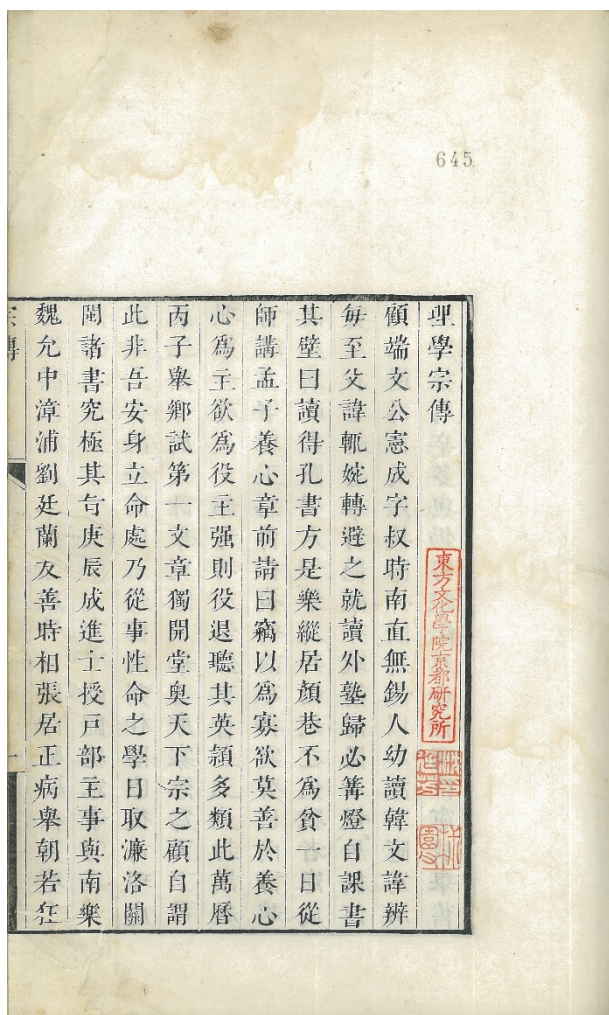 645
理學宗傳
顧端文公憲成字叔時南直無錫人幼讀韓文諱辨
每至父諱輒婉轉避之就讀外塾歸必篝燈自課書
其壁曰讀得孔書方是樂縱居顏巷不爲貧一日從
師講孟子養心章前請曰竊以爲寡欲莫善於養心
心爲主欲爲役主强則役退聽其英頴多類此萬曆
丙子舉鄉試第一文章獨開堂奥天下宗之顧自謂
此非吾安身立命處乃從事性命之學日取濂洛關
閩諸書究極其旨庚辰成進士授戸部主事與南樂
魏允中漳浦劉廷蘭友善時相張居正病舉朝若狂
宗傳
東方文化學院京都研究所